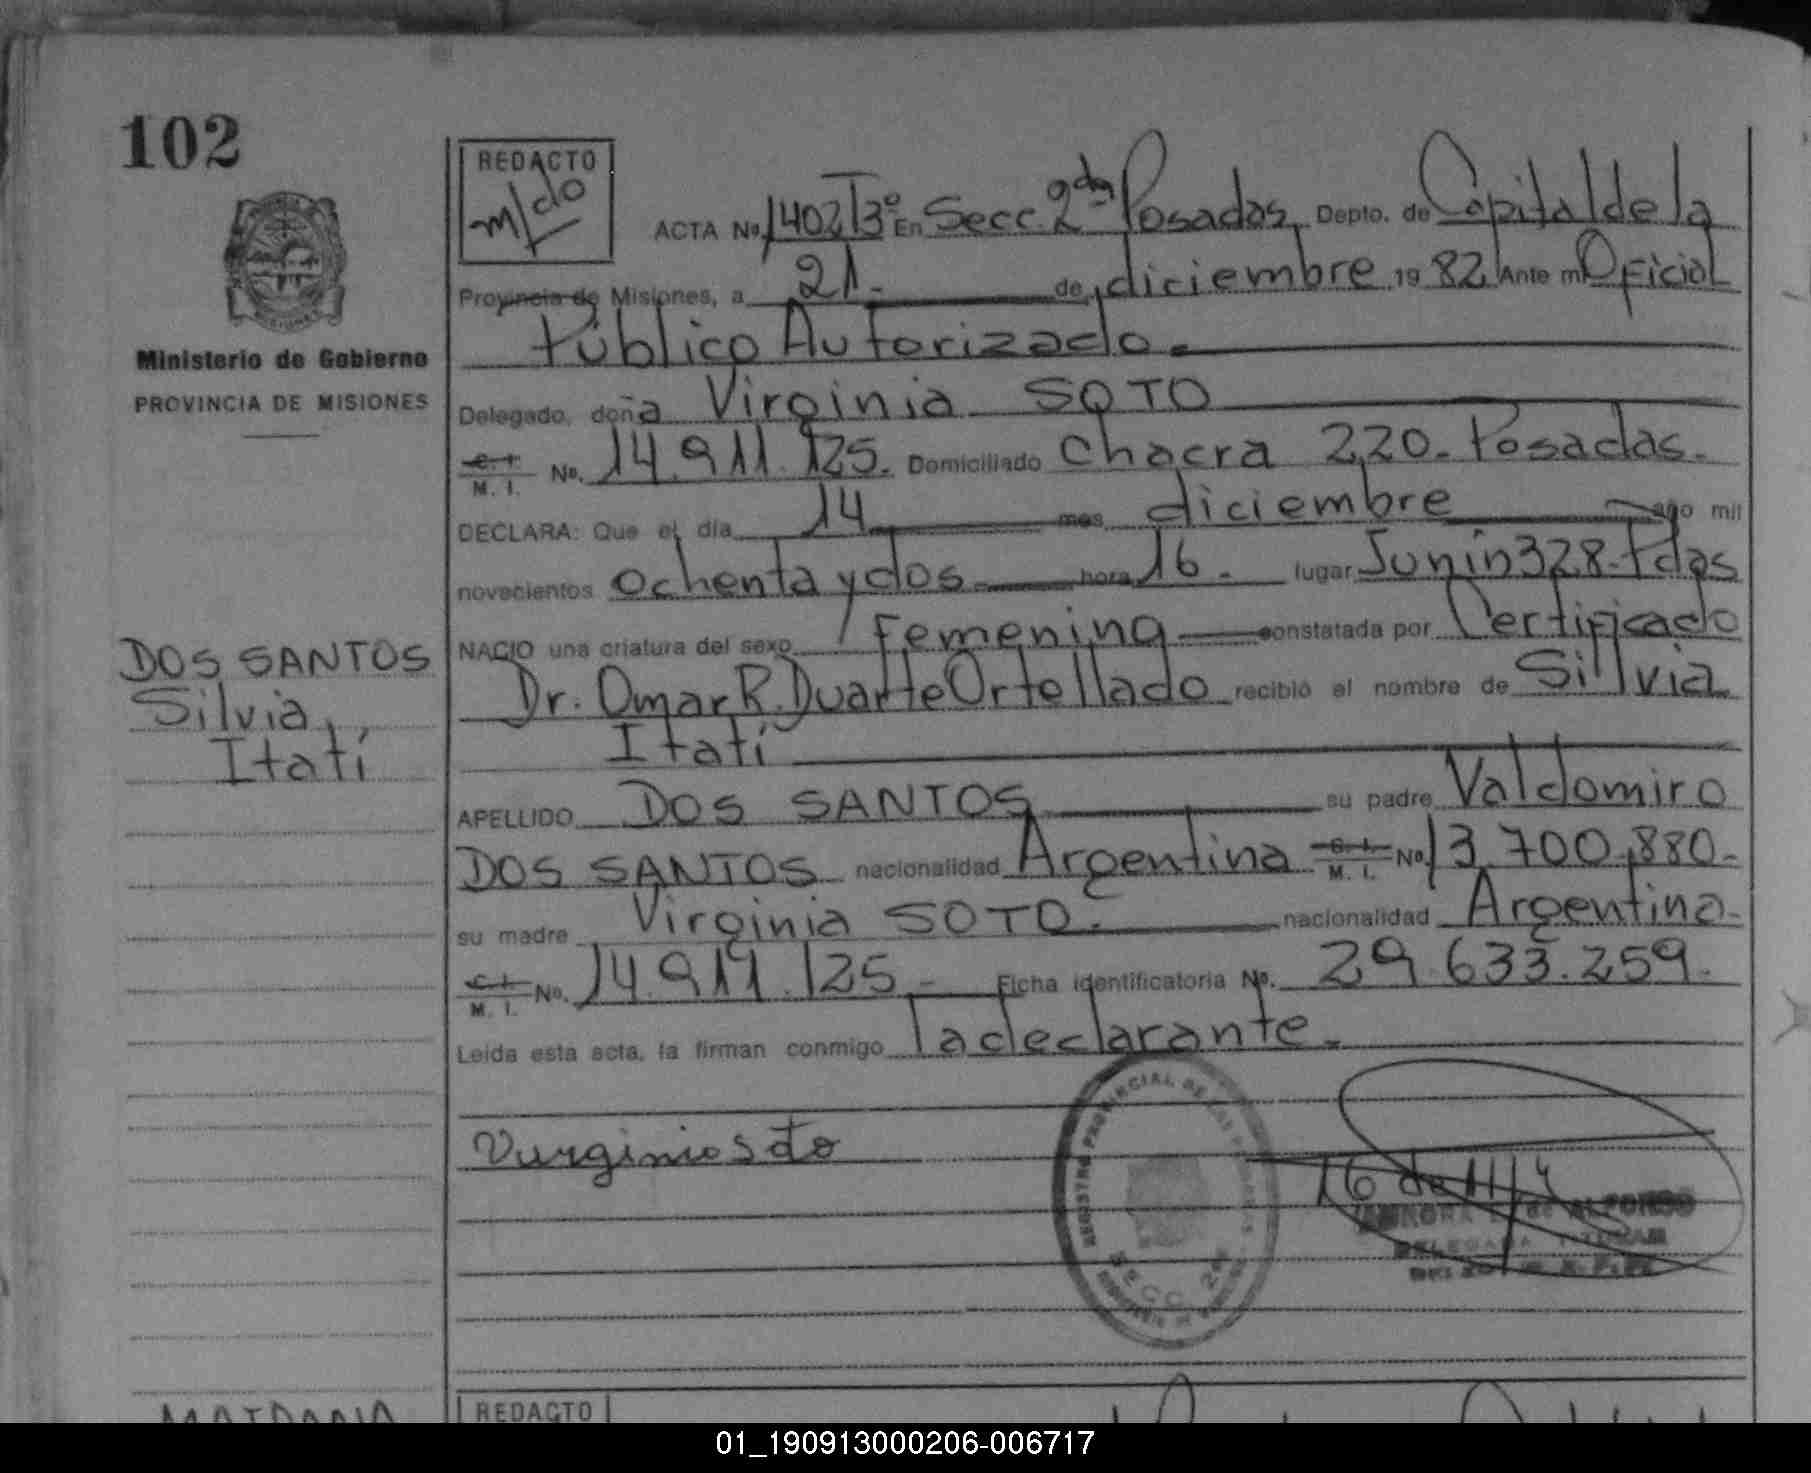 102
Ministerio de Gobierno
PROVINCIA DE MISIONES
DOS SANTOS
Silvia
Itatí
REDACTO
m/do
ACTA No. 1402 T3º En Secc. 2da Posadas, Depto. de Capital de la
Provincia de Misiones, a 21. de diciembre 19 82 Ante mi Oficial
Público Autorizado.
Delegado, doña Virginia SOTO
C. I. M. I. No. 14.911.125. Domiciliado Chacra 220. Posadas.
DECLARA: Que el día 14 mes diciembre año mil
novecientos ochenta y dos hora 16. lugar Junín 328. Pdas
NACIO una criatura del sexo Femenina constatada por Certificado
Dr. Omar R. Duarte Ortellado recibió el nombre de Sillvia
Itatí
APELLIDO DOS SANTOS su padre Valdomiro
DOS SANTOS nacionalidad Argentina C. I. M. I. No. 13.700.880.
su madre Virginia SOTO. nacionalidad Argentina.
C. I. M. I. No. 14.911.125.- Ficha identificatoria No. 29.633.259.
Leída esta acta, la firman conmigo la declarante.
Virginia Soto
REGISTRO PROVINCIAL DE LAS PERSONAS
SECC. 2da
DE ALFONSO
DELEGADA TITULAR
REDACTO
01_190913000206-006717